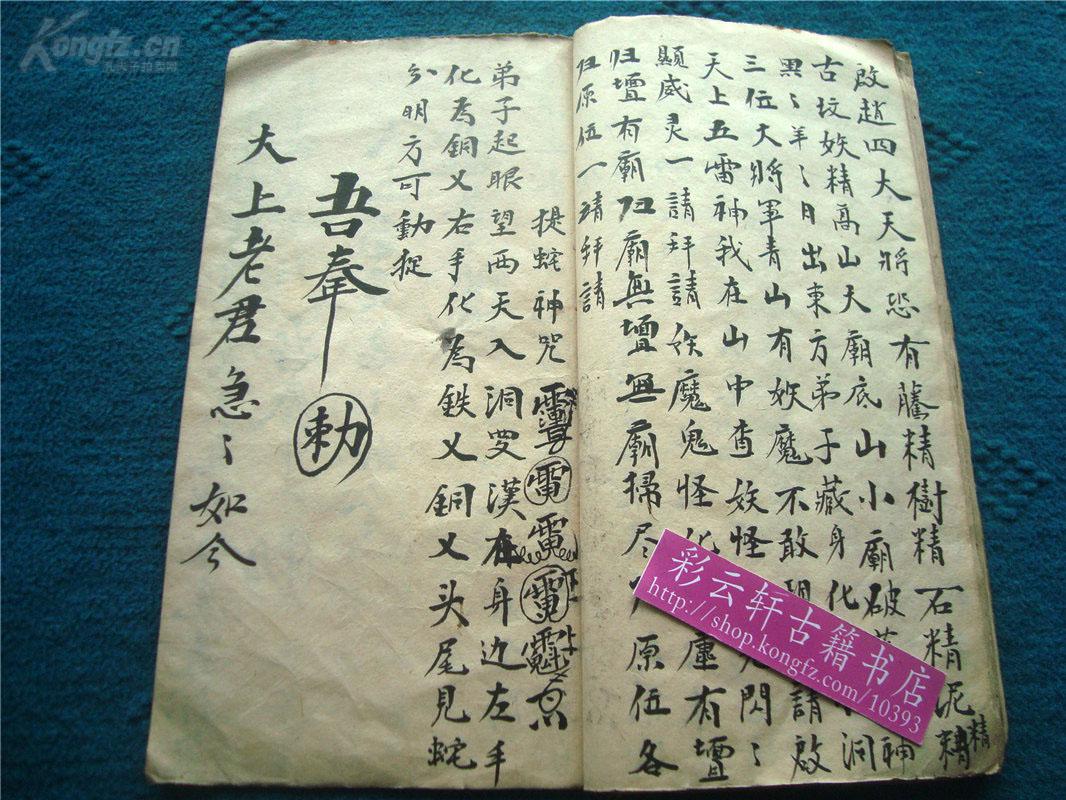 啟趙四大天將恐有騰精樹精石精泥精精
古坟妖精高山大廟底山小廟破神
黑〻羊〻日出東方弟子藏身化洞
三位大將軍青山有妖魔不敢現請啟
天上五雷神我在山中查妖怪閃〻
顯威灵一請拜請妖魔鬼怪化塵有壇
归壇有廟归廟無壇無廟掃尽原位各
归原位一請拜請
提蛇神咒
弟子起眼望西天入洞漢在身边左手
化為銅乂右手化為鉄乂銅乂头尾見蛇
分明方可動捉
吾奉勅
大上老君急〻如令
彩云轩古籍书店
http://shop.kongfz.com/10393
Kongfz.cn